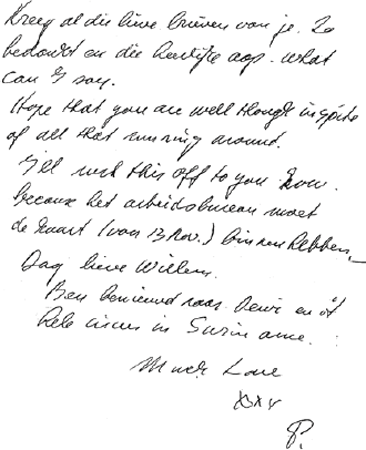 Kreeg al die lieve brieven van je. Zo
bedankt en die heerlijke aap. What
can I say.
Hope that you are well though in spite
of all that running around.
I'll rush this off to you now.
because het arbeidsbureau moet
de kaart (voor 13 Nov.) binnen hebben.
Dag lieve Willem.
Ben benieuwd naar en 't
hele circus in Suriname.
Much Love
xxx
P.